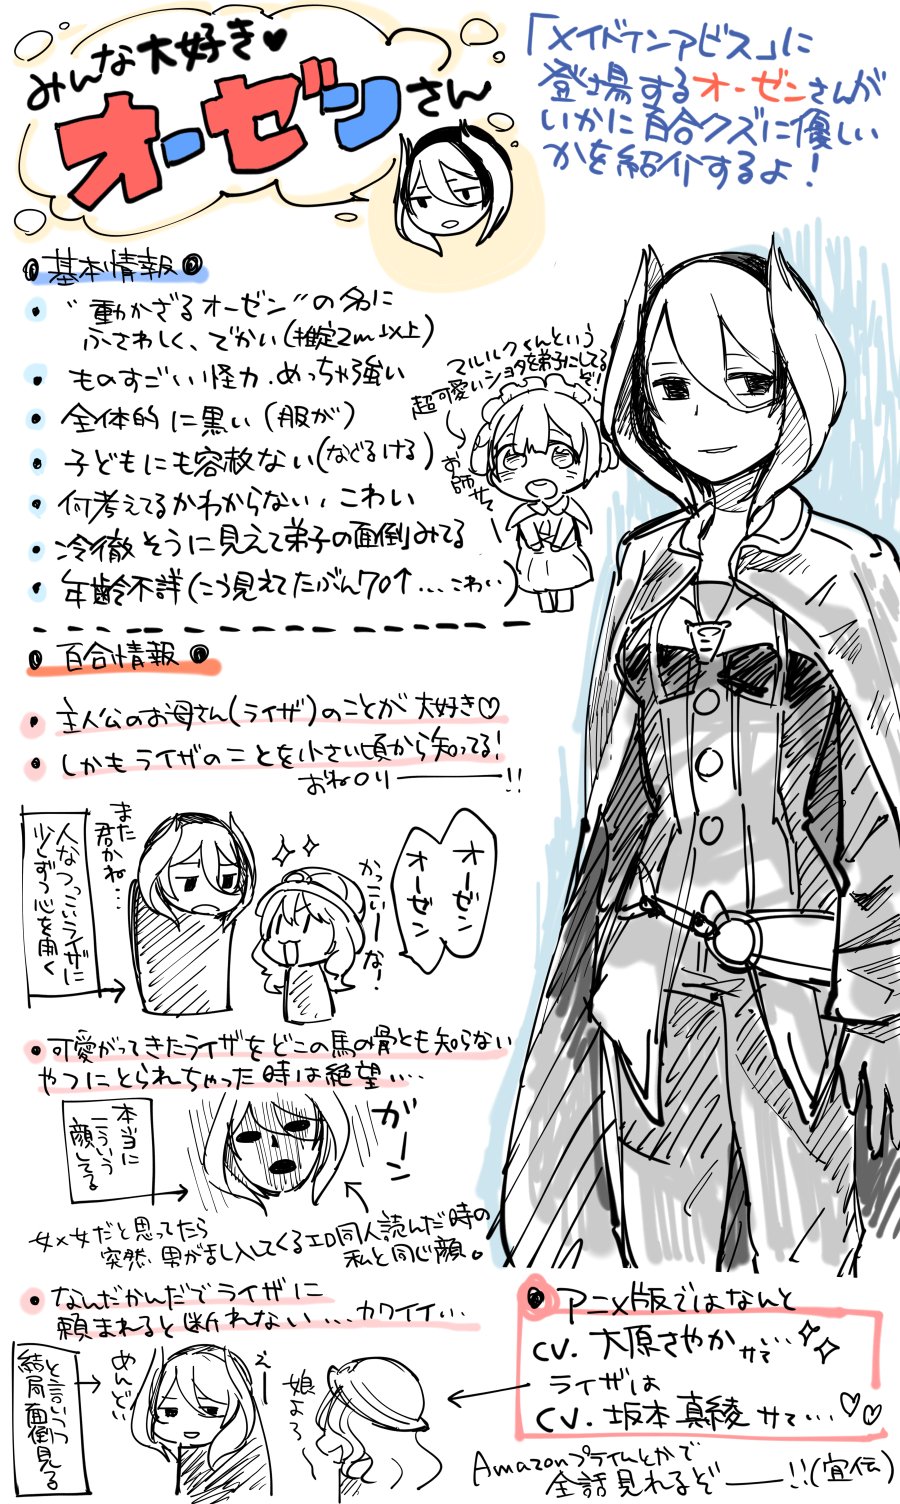 みんな大好き♥
オーゼンさん
「メイドインアビス」に
登場するオーゼンさんが
いかに百合クズに優しい
かを紹介するよ!
基本情報
・"動かざるオーゼン"の名に
ふさわしく、でかい(推定2m以上)
・ものすごい怪力。めっちゃ強い
・全体的に黒い(服が)
・子どもにも容赦ない(なぐるける)
・何考えてるかわからない、こわい
・冷徹そうに見えて弟子の面倒みてる
・年齢不詳(こう見えてたぶん70↑…こわい)
マルルクくんという
超可愛いショタを弟子にしてる
ぞ!
お師させ
百合情報
・主人公のお母さん(ライザ)のことが大好き♡
・しかもライザのことを小さい頃から知ってる!
おねロリ――!!
人なつっこいライザに
少しずつ心を開く
また
君かね…
かっこいーな!
オーゼン
オーゼン
・可愛がってきたライザをどこの馬の骨とも知らない
やつにとられちゃった時は絶望…
本当に
こういう
顔してる
がーン
女×女だと思ってたら
突然男が乱入してくるエロ同人読んだ時の
私と同じ顔。
・なんだかんだでライザに
頼まれると断れない…カワイイ…
と言いつつ
結局面倒見る
めんどい
えー
娘よろ〜
・アニメ版ではなんと
CV.大原さやかサマ…
ライザは
CV.坂本真綾サマ…♡♡
Amazonプライムとかで
全話見れるぞ――!!(宣伝)